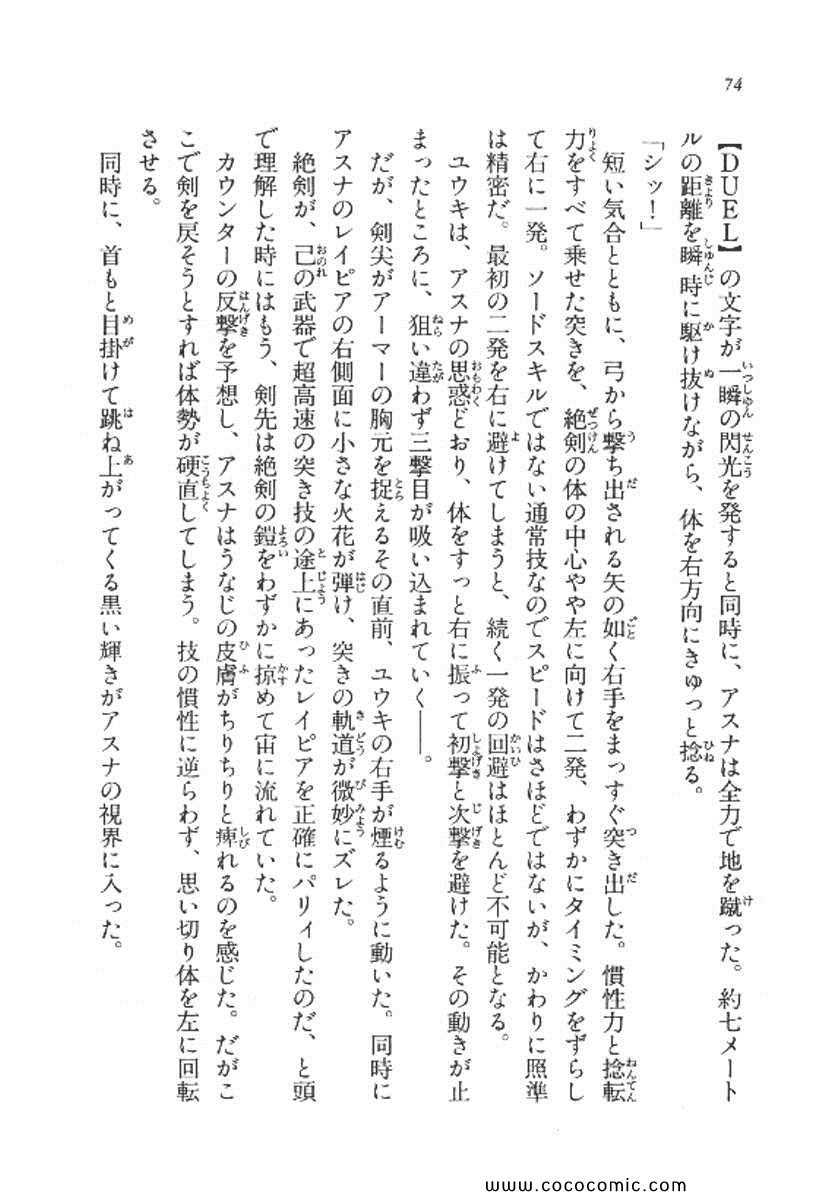 74
【DUEL】の文字が一瞬の閃光を発すると同時に、アスナは全力で地を蹴った。約七メート
ルの距離を瞬時に駆け抜けながら、体を右方向にきゅっと捻る。
「シッ!」
短い気合とともに、弓から撃ち出される矢の如く右手をまっすぐ突き出した。慣性力と捻転
力をすべて乗せた突きを、絶剣の体の中心やや左に向けて二発、わずかにタイミングをずらし
て右に一発。ソードスキルではない通常技なのでスピードはさほどではないが、かわりに照準
は精密だ。最初の二発を右に避けてしまうと、続く一発の回避はほとんど不可能となる。
ユウキは、アスナの思惑どおり、体をすっと右に振って初撃と次撃を避けた。その動きが止
まったところに、狙い違わず三撃目が吸い込まれていく――。
だが、剣尖がアーマーの胸元を捉えるその直前、ユウキの右手が煙るように動いた。同時に
アスナのレイピアの右側面に小さな火花が弾け、突きの軌道が微妙にズレた。
絶剣が、己の武器で超高速の突き技の途上にあったレイピアを正確にパリィしたのだ、と頭
で理解した時にはもう、剣先は絶剣の鎧をわずかに掠めて宙に流れていた。
カウンターの反撃を予想し、アスナはうなじの皮膚がちりちりと痺れるのを感じた。だがこ
こで剣を戻そうとすれば体勢が硬直してしまう。技の慣性に逆らわず、思い切り体を左に回転
させる。
同時に、首もと目掛けて跳ね上がってくる黒い輝きがアスナの視界に入った。
www.cococomic.com